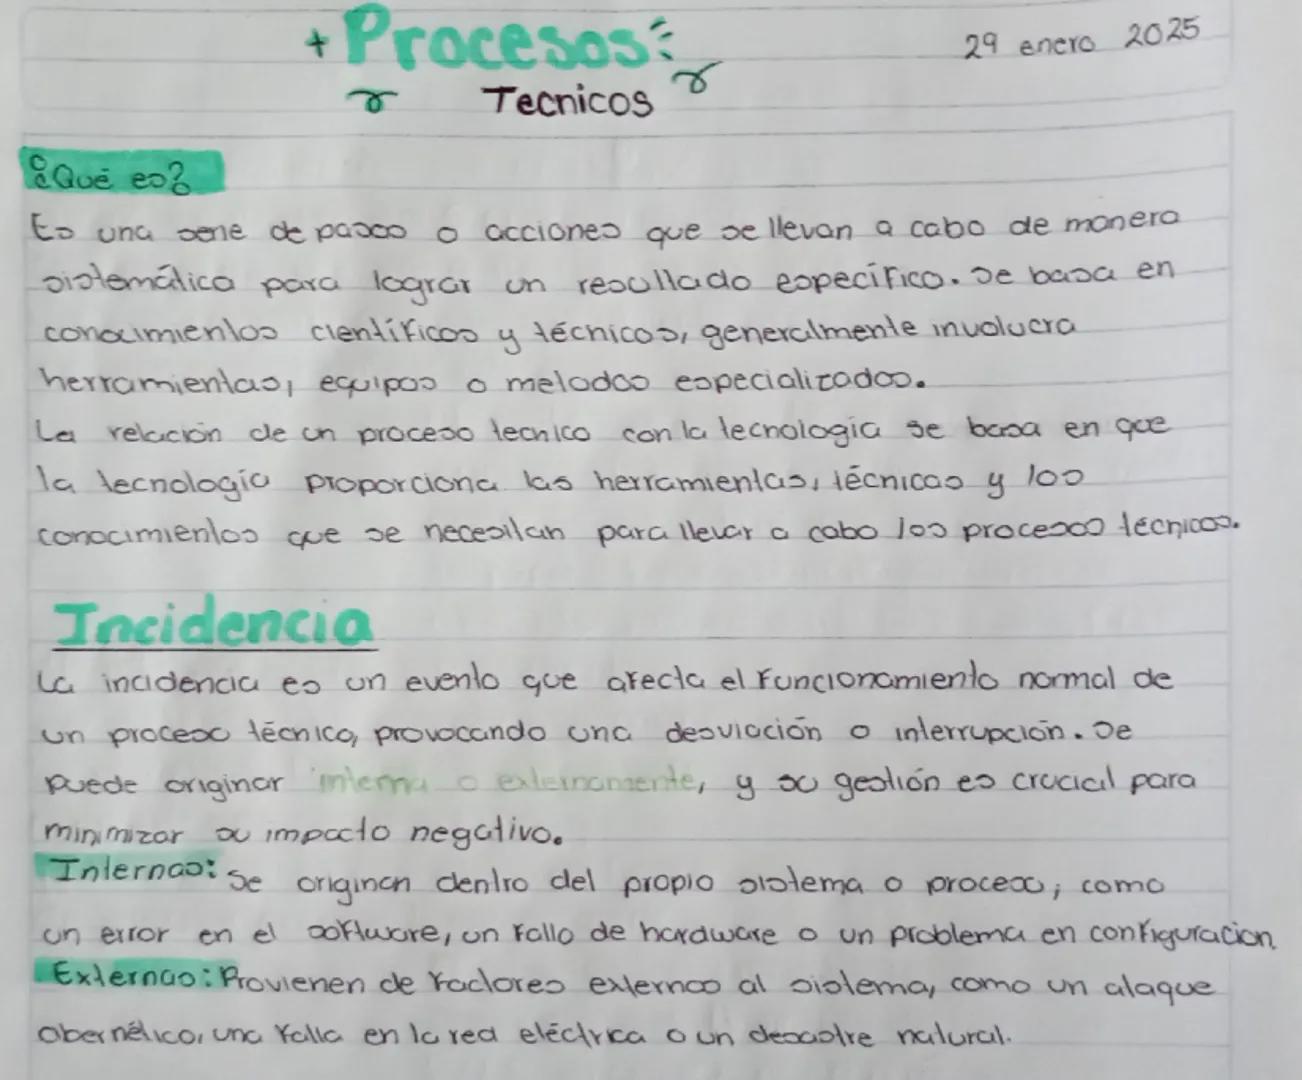 + Procesos:
29 enero 2025
Tecnicos
¿Qué es?
Es una serie de pasos o acciones que se llevan a cabo de manera
sistemática para lograr un resultado específico. Se basa en
conocimientos científicos y técnicos, generalmente involucra
herramientas, equipos o metodos especializados.
La relación de un proceso tecnico con la tecnologia se basa en que
la tecnología proporciona las herramientas, técnicas y los
conocimientos que se necesitan para llevar a cabo los procesos técnicos.
Incidencia
La incidencia es un evento que afecta el funcionamiento normal de
un proceso técnico, provocando una desviación o interrupción. Se
puede originar interna o externamente, y su gestión es crucial para
minimizar su impacto negativo.
Internas: Se originan dentro del propio sistema o proceso, como
un error en el software, un fallo de hardware o un problema en configuracion
Externas: Provienen de factores externos al sistema, como un ataque
cibernético, una falla en la red eléctrica o un desastre natural.